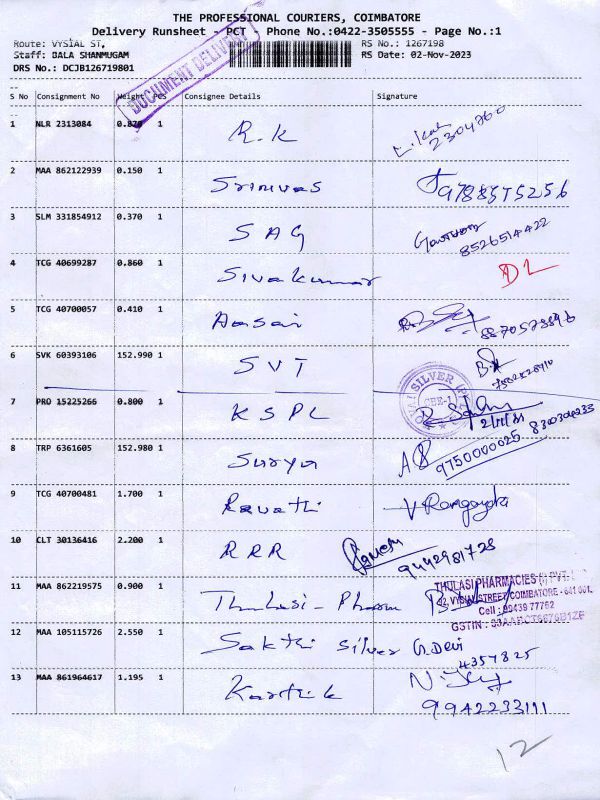 THE PROFESSIONAL COURIERS, COIMBATORE
Delivery Runsheet - PCT Phone No.:0422-3505555 - Page No.:1
Route: VYSIAL ST, RS No.: 1267198
Staff: BALA SHANMUGAM RS Date: 02-Nov-2023
DRS No.: DCJB126719801
DOCUMENT DELIVERY
S No Consignment No Weight PCS Consignee Details Signature
1 NLR 2313084 1 R.K 2304760
2 MAA 862122939 0.150 1 Srinivas
3 SLM 331854912 0.370 1 SAG 8526514422
4 TCG 40699287 0.860 1 Sivakumar
5 TCG 40700057 0.410 1
6 SVK 60393106 152.990 1 SVT
7 PRO 15225266 0.800 1 KSPL
8 TRP 6361605 152.980 1 Surya 9750000025
9 TCG 40700481 1.700 1 Revathi
10 CLT 30136416 2.200 1 RRR 9442981728
11 MAA 862219575 0.900 1 Thulasi - Pharm
THULASI PHARMACIES (I) PVT.
42, VYSIAL STREET, COIMBATORE - 641 001.
Cell : 99439 77762
12 MAA 105115726 2.550 1 Sakthi Silver G.Devi
4357825
13 MAA 861964617 1.195 1 Karthik
9942233111
12